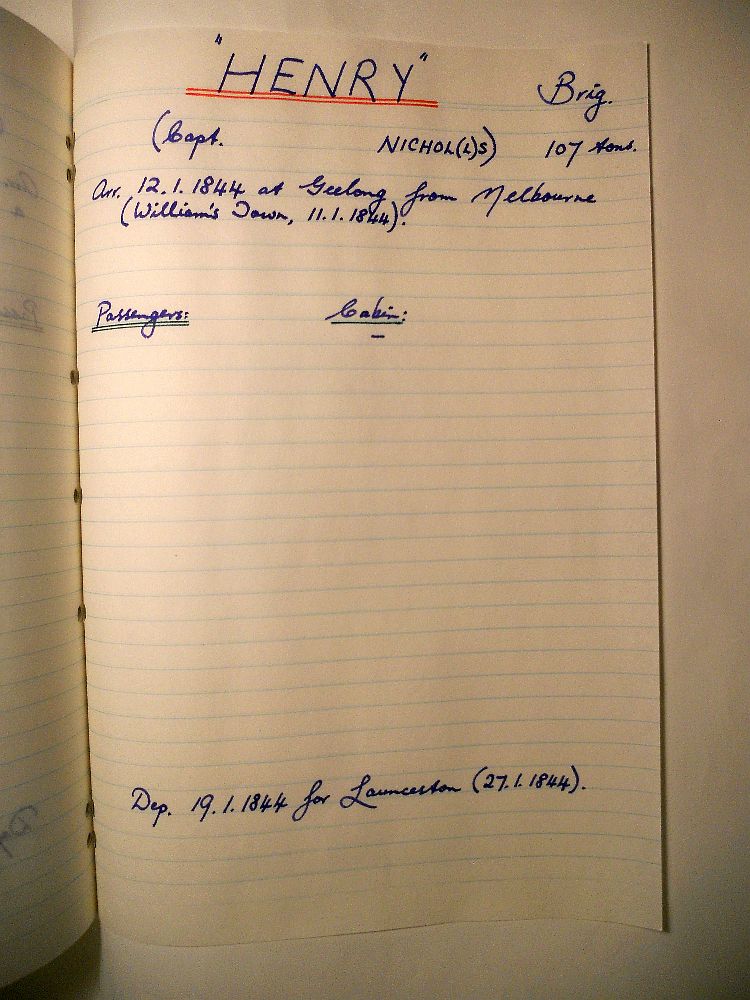 "HENRY" Brig.
(Capt. NICHOL(L)S) 107 tons.
Arr. 12.1.1844 at Geelong from Melbourne
(William's Town, 11.1.1844).
Passengers: Cabin:
—
Dep. 19.1.1844 for Launceston (27.1.1844).